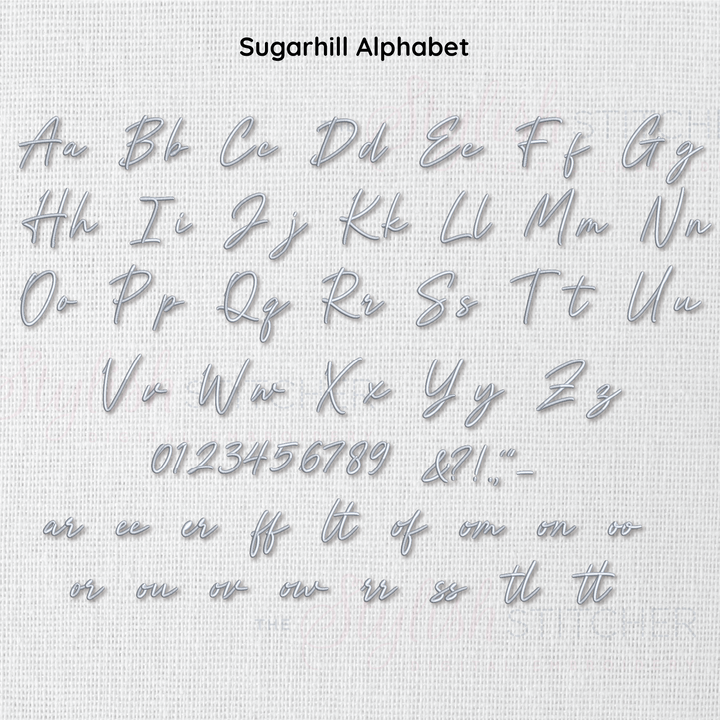 Sugarhill Alphabet
Aa Bb Cc Dd Ee Ff Gg
Hh Ii Jj Kk Ll Mm Nn
Oo Pp Qq Rr Ss Tt Uu
Vv Ww Xx Yy Zz
0123456789 &?!.,'"“-
ar ee er ff lt of om on oo
or ou ov ow rr ss tl tt
THE STITCHER